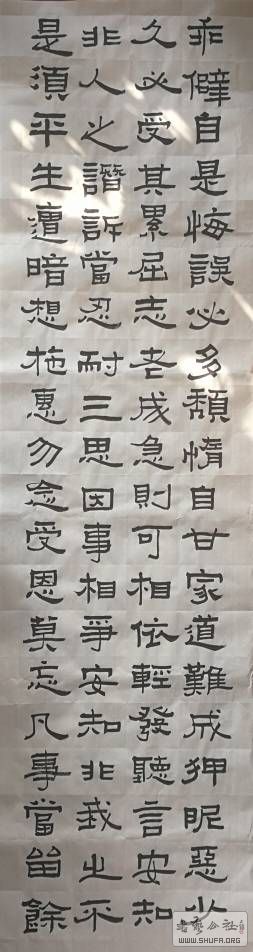 乖僻自是悔誤必多頹惰自甘家道難成狎昵惡少
久必受其累屈志老成急則可相依輕發聽言安知
非人之譖訴當忍耐三思因事相爭安知非我之不
是須平生遭暗想施惠勿念受恩莫忘凡事當留餘
WWW.SHUFA.ORG